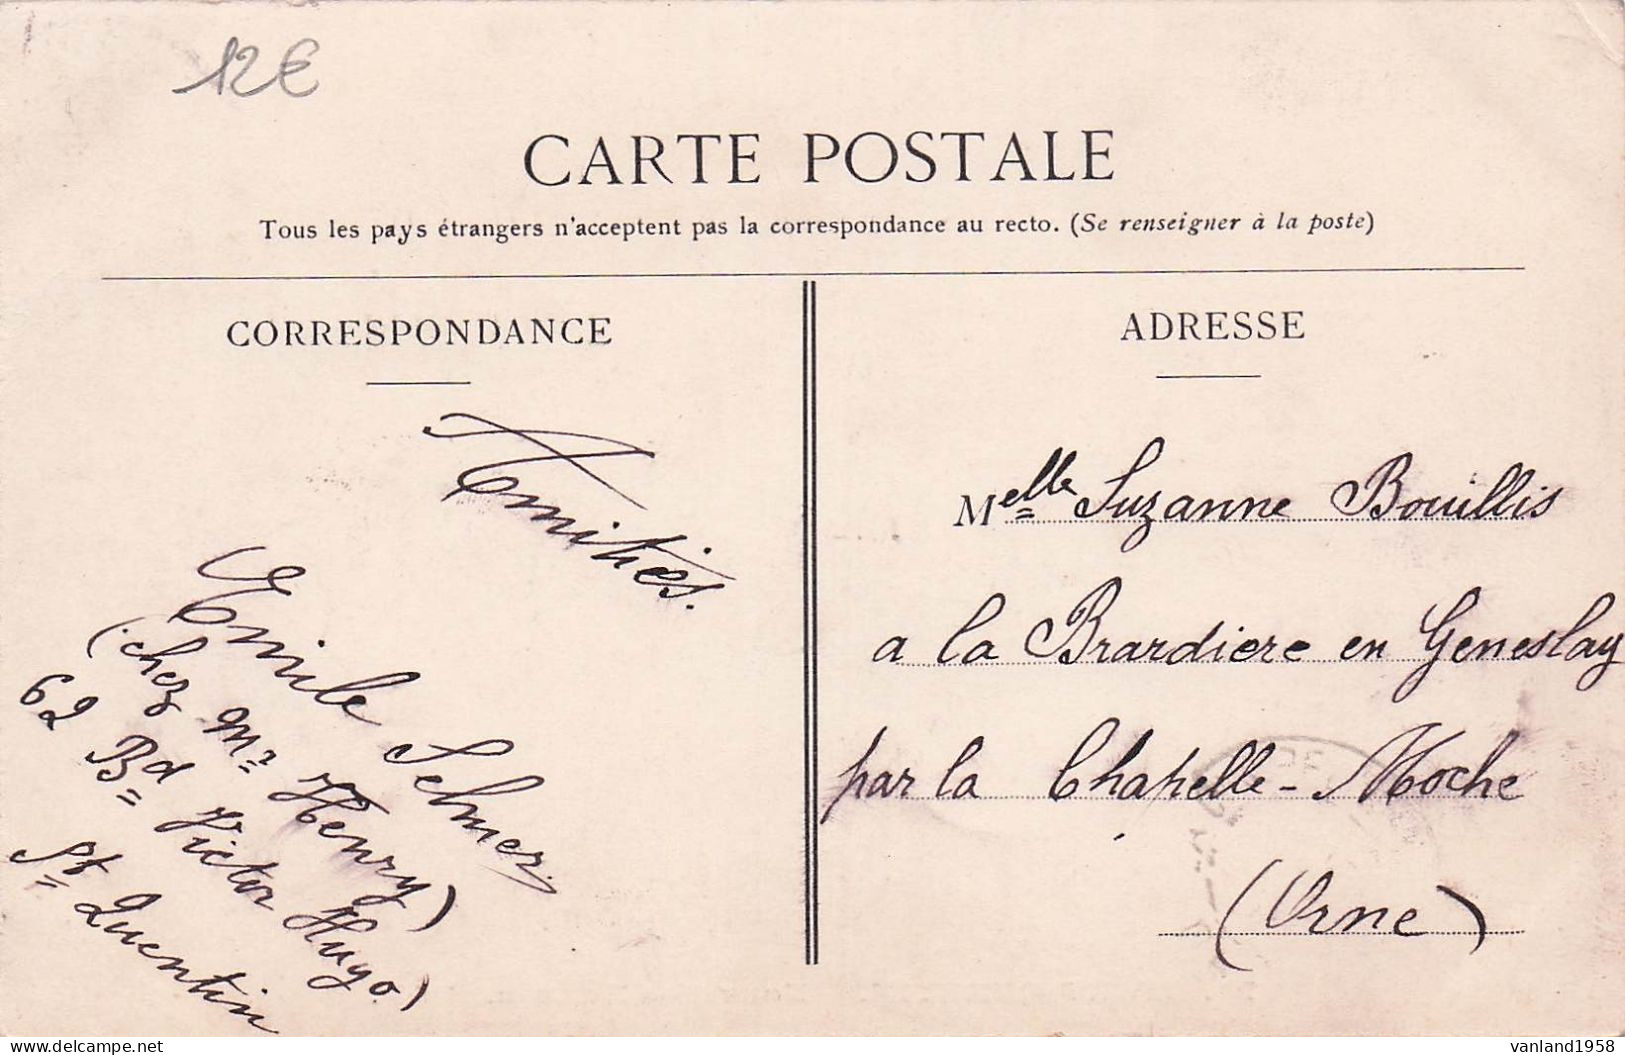 12€
CARTE POSTALE
Tous les pays étrangers n'acceptent pas la correspondance au recto. (Se renseigner à la poste)
CORRESPONDANCE
Amitiés.
Emile Schmer
(chez Mr Henry)
62 Bd Victor Hugo)
St Quentin
ADRESSE
Melle Suzanne Bouillis
a la Brardiere en Geneslay
par la Chapelle-Moche
(Orne)
vanland1958